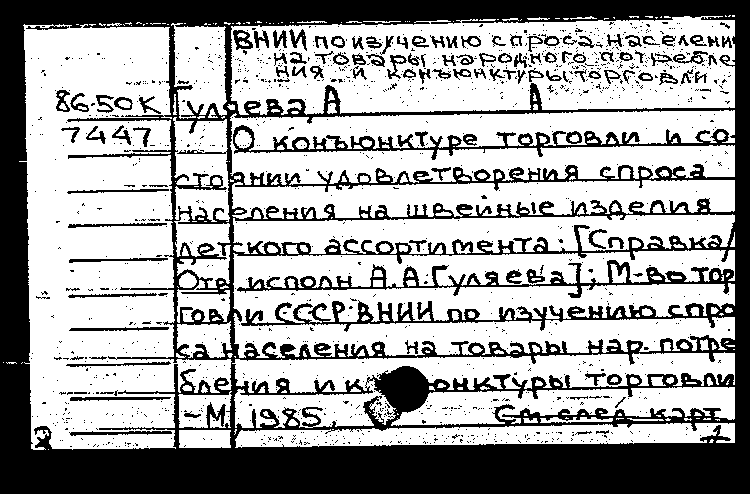 ВНИИ по изучению спроса населени
на товары народного потребле
ния и конъюнктуры торговли
86-50К Гуляева, А А
7447 О конъюнктуре торговли и со-
стоянии удовлетворения спроса
населения на швейные изделия
детского ассортимента: [Справка/
Отв. исполн А.А.Гуляева]; М-во тор
говли СССР, ВНИИ по изучению спро
са населения на товары нар. потре
бления и к онктуры торговли
-М, 1985.
См. след. карт.
1